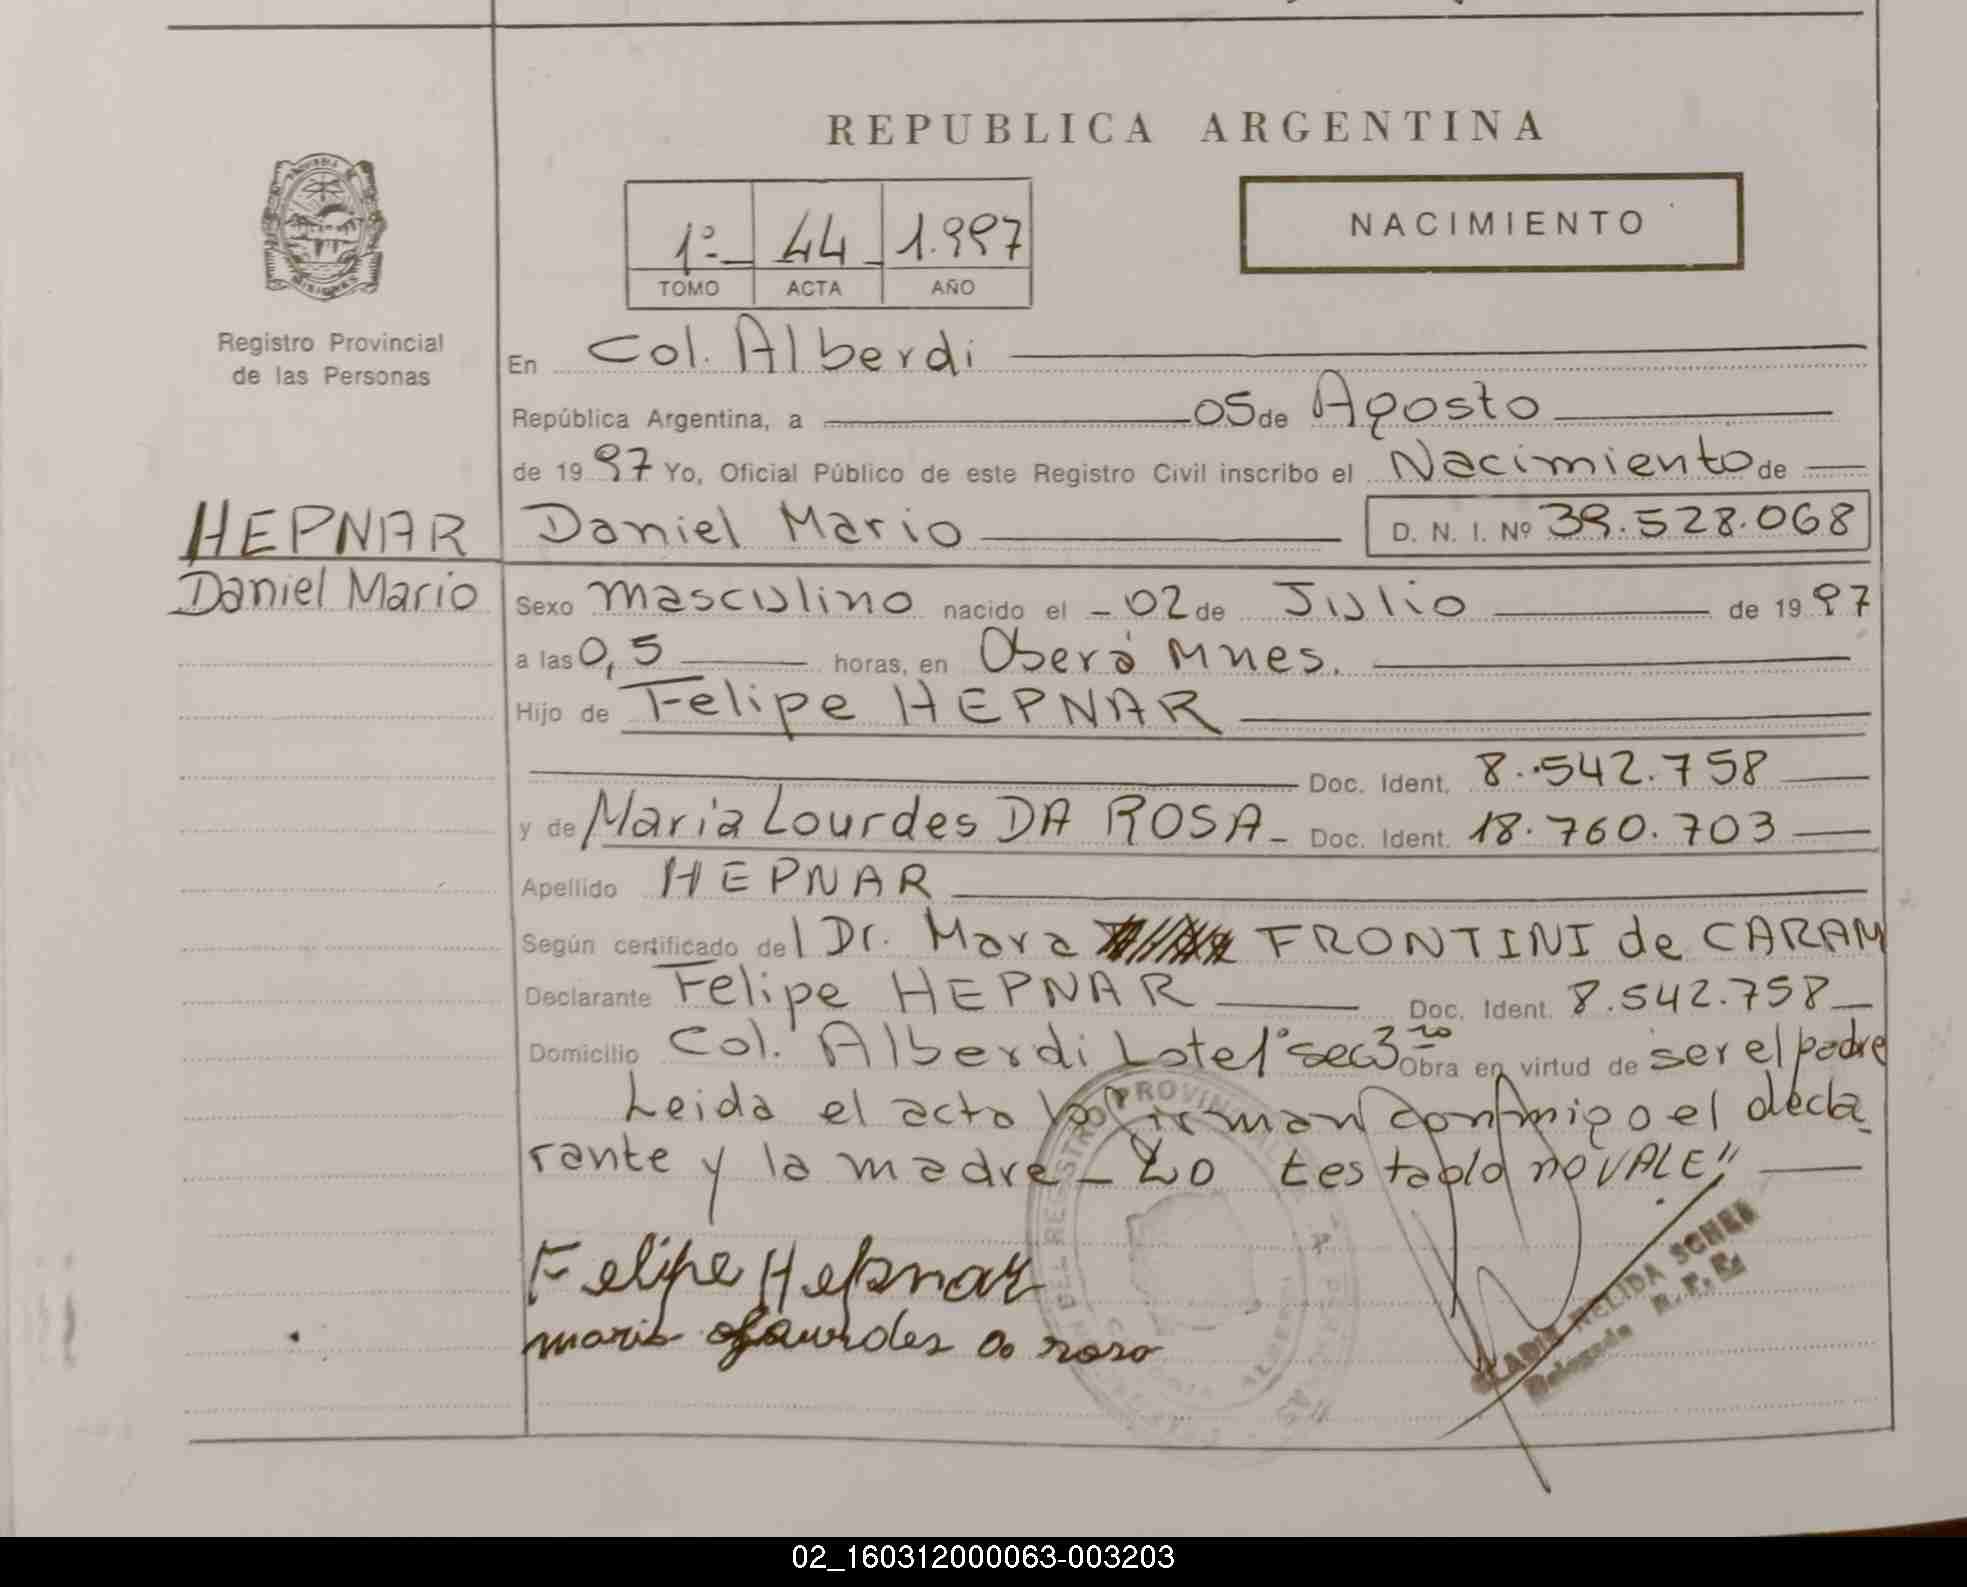 REPUBLICA ARGENTINA
NACIMIENTO
1º 44 1.997
TOMO ACTA AÑO
MISIONES
Registro Provincial
de las Personas
En Col. Alberdi
República Argentina, a 05 de Agosto
de 19 97 Yo, Oficial Público de este Registro Civil inscribo el Nacimiento de
HEPNAR
Daniel Mario
Daniel Mario D. N. I. Nº 39.528.068
Sexo masculino nacido el - 02 de Julio de 19 97
a las 0,5 horas, en Oberá Mnes.
Hijo de Felipe HEPNAR
Doc. Ident. 8.542.758
y de Maria Lourdes DA ROSA - Doc. Ident. 18.760.703
Apellido HEPNAR
Según certificado del Dr. Mara FRONTINI de CARAM
Declarante Felipe HEPNAR Doc. Ident. 8.542.758
Domicilio Col. Alberdi Lote 1º sec 3ra Obra en virtud de ser el padre
Leida el acta la firman conmigo el decla
rante y la madre - Lo testado no VALE"
Felipe Hepnar
maria Lourdes da rosa
DEL REGISTRO PROVINCIAL
ALBERDI
NELIDA
Delegada R. P. P.
02_160312000063-003203